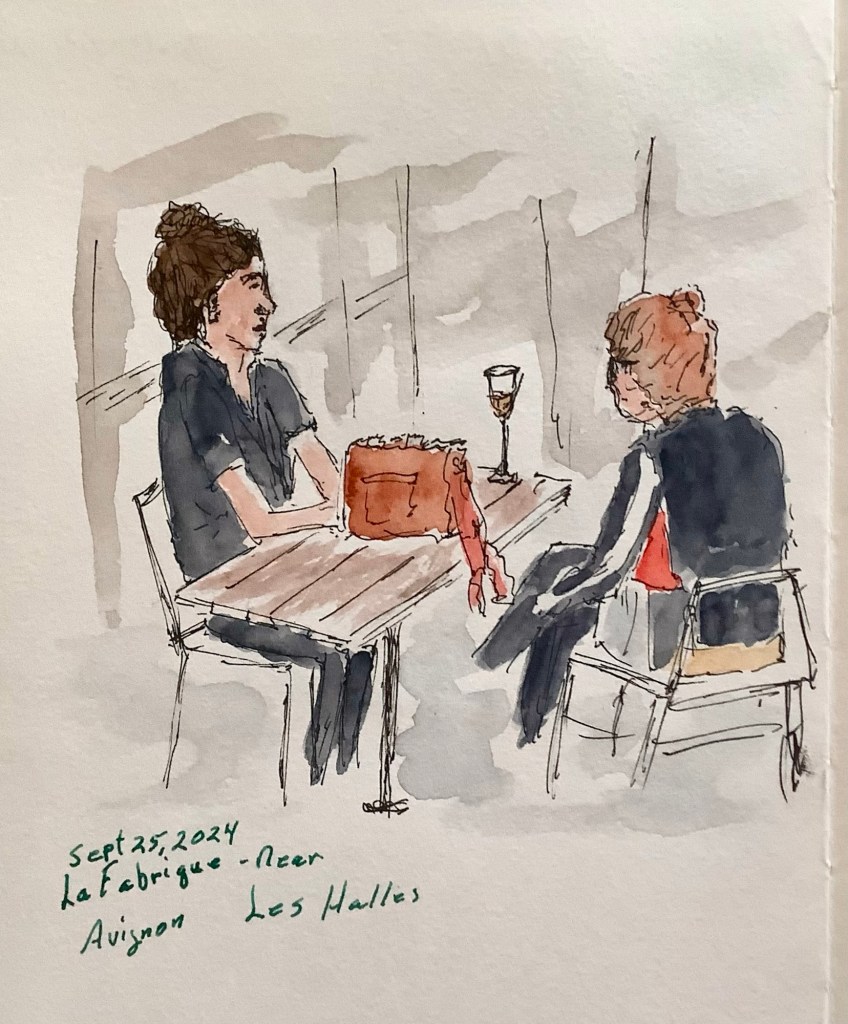 Sept 25, 2024
La Fabrique - near
Avignon Les Halles